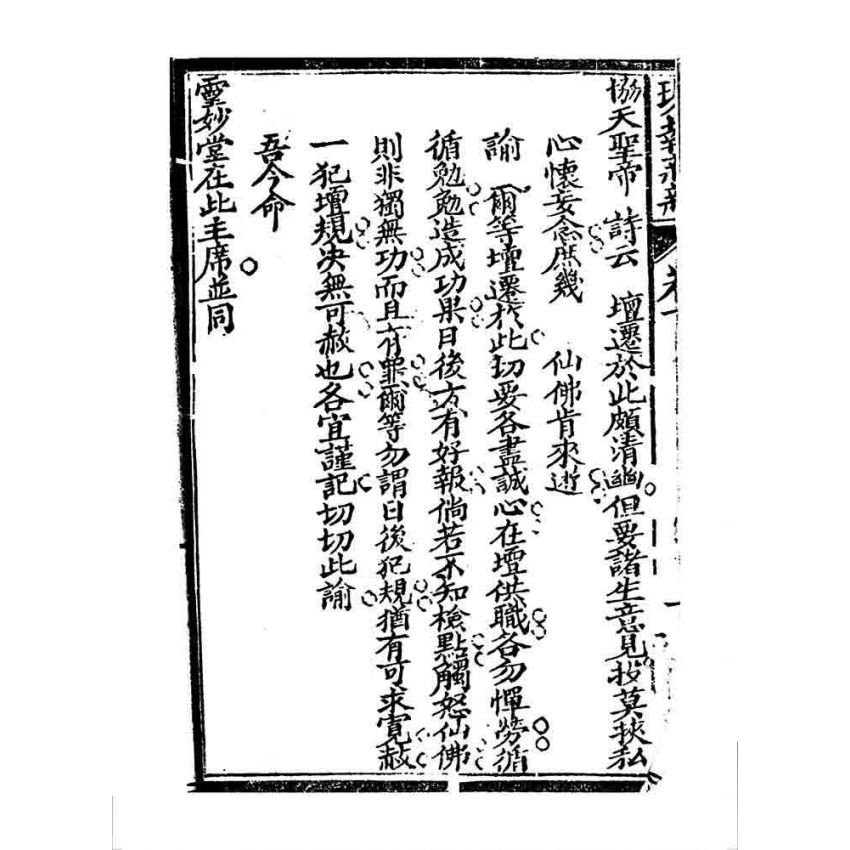 協天聖帝 詩云 壇遷於此頗清幽但要諸生意見投莫挾私
心懷妄念庶幾 仙佛肯來遊
諭 爾等壇遷於此切要各盡誠心在壇供職各勿憚勞循
循勉勉造成功果日後方有好報倘若不知檢點觸怒仙佛
則非獨無功而且有罪爾等勿謂日後犯規猶有可求寬赦
一犯壇規決無可赦也各宜謹記切切此諭
吾今命
靈妙堂在此主席並同